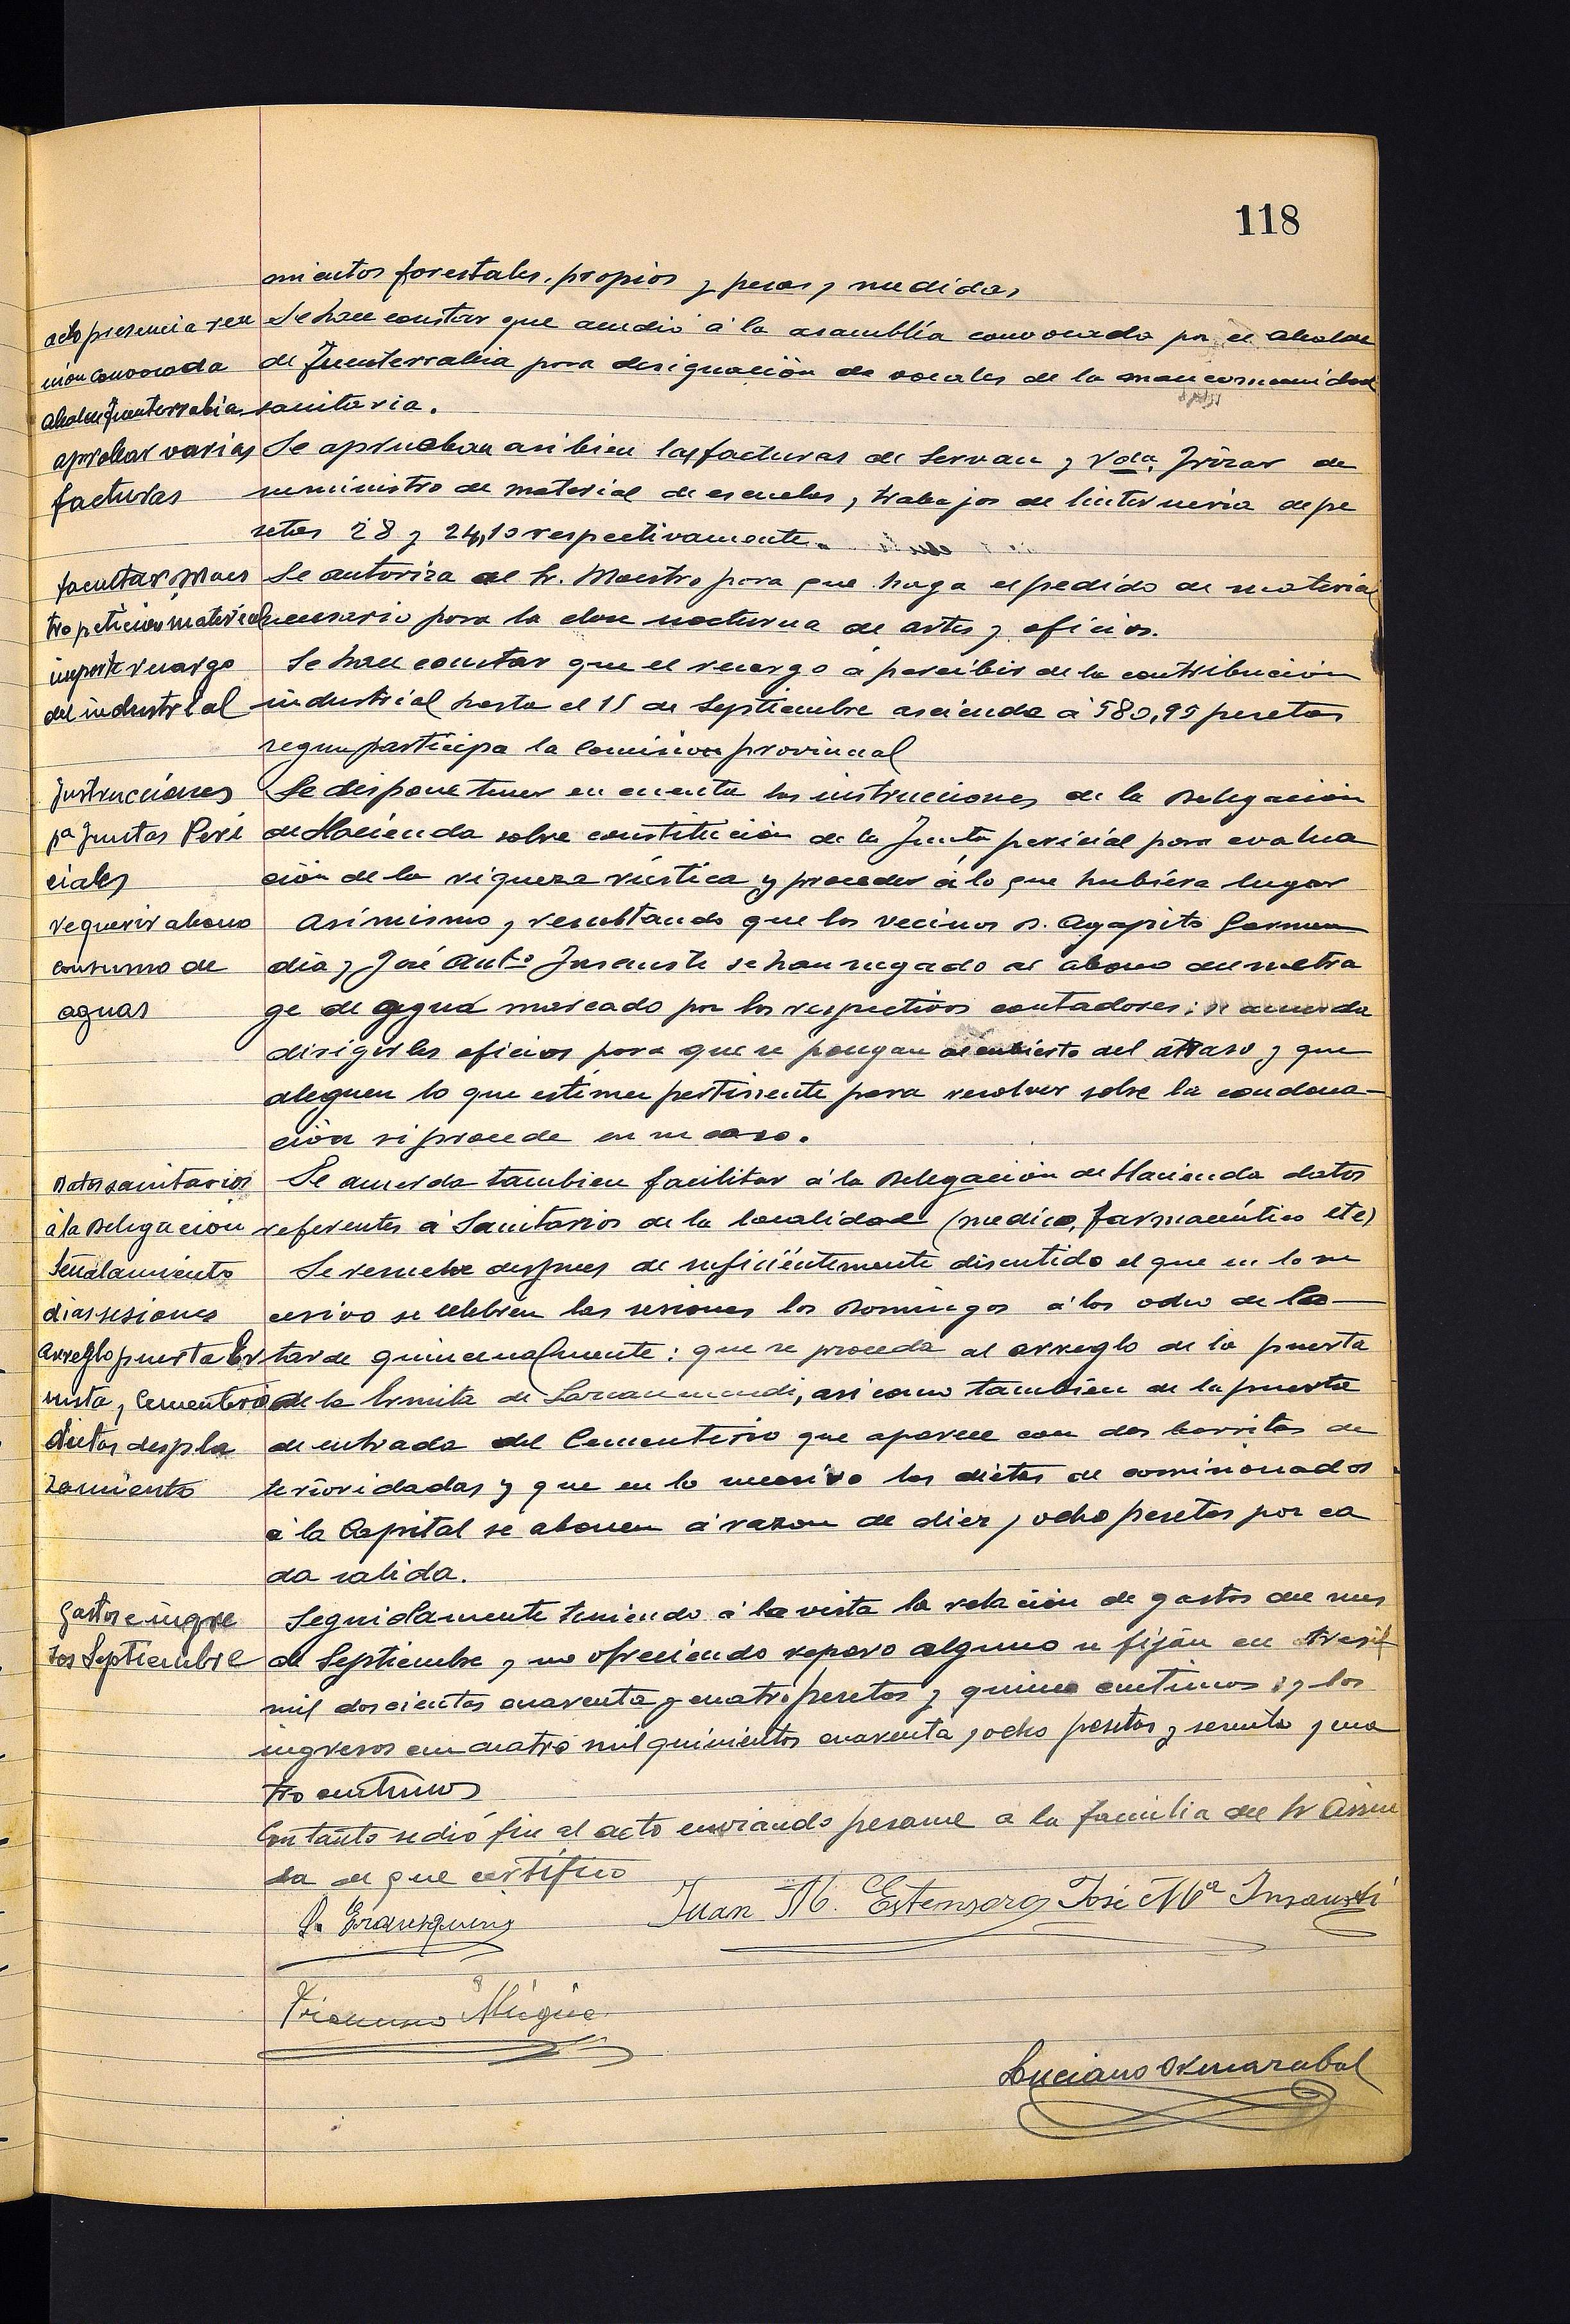 118
mientos forestales, propios y pesas y medidas
acto presencia reu
nión convocada
Alcalde Fuenterrabia
Se hace constar que acudió á la asamblea convocada por el Alcalde
de Fuenterrabia para designación de vocales de la mancomunidad
sanitaria.
aprobar varias
facturas
Se aprueban asi bien las facturas de Servan y Vda. Irízar de
suministro de material de escuelas, trabajos de linterneria de pe
setas 28 y 24,10 respectivamente.
facultar Maes
tro petición material
Se autoriza al Sr. Maestro para que haga el pedido de material
necesario para la clase nocturna de artes y oficios.
importe recargo
del industrial
Se hace constar que el recargo á percibir de la contribución
industrial hasta el 15 de Septiembre asciende á 580,95 pesetas
segun participa la Comision provincial
Instrucciones
pa Juntas Peri
ciales
Se dispone tener en cuenta las instrucciones de la Delegación
de Hacienda sobre constitución de la Junta pericial para evalua
ción de la riqueza rústica y proceder á lo que hubiera lugar
requerir abono
consumo de
aguas
Asimismo, resultando que los vecinos D. Agapito Garmen
dia y José Anto Insausti se han negado al abono del metra
ge de agua marcado por los respectivos contadores: se acuerda
dirigirles oficios para que se pongan al cubierto del atraso y que
aleguen lo que estimen pertinente para resolver sobre la condona-
ción si procede en su caso.
Datos sanitarios
á la Delegación
Se acuerda tambien facilitar á la Delegación de Hacienda datos
referentes á Sanitarios de la localidad (medico, farmacéutico etc)
Señalamiento
dias sesiones
Arreglo puerta Er
mita, Cementerio
dietas despla
zamiento
Se resuelve despues de suficientemente discutido el que en lo su
cesivo se celebren las sesiones los Domingos á las ocho de la
tarde quincenalmente: que se proceda al arreglo de la puerta
de la Ermita de, asi como tambien de la puerta
de entrada del Cementerio que aparece con dos barritas de
terioridadas y que en lo sucesivo las dietas de comisionados
á la Capital se abonen á razon de diez y ocho pesetas por ca
da salida.
Gastos e ingre
sos Septiembre
Seguidamente teniendo á la vista la relación de gastos del mes
de Septiembre y no ofreciendo reparo alguno se fijan en tres
mil doscientas cuarenta y cuatro pesetas y quince centimos; y los
ingresos en cuatro mil quinientos cuarenta y ocho pesetas y sesenta y cua
tro centimos
Con tanto se dió fin al acto enviando pesame a la familia del Sr
de que certifico
Juan M. Estensoro José Ma Insausti
Francisco Múgica
Luciano Ormazabal